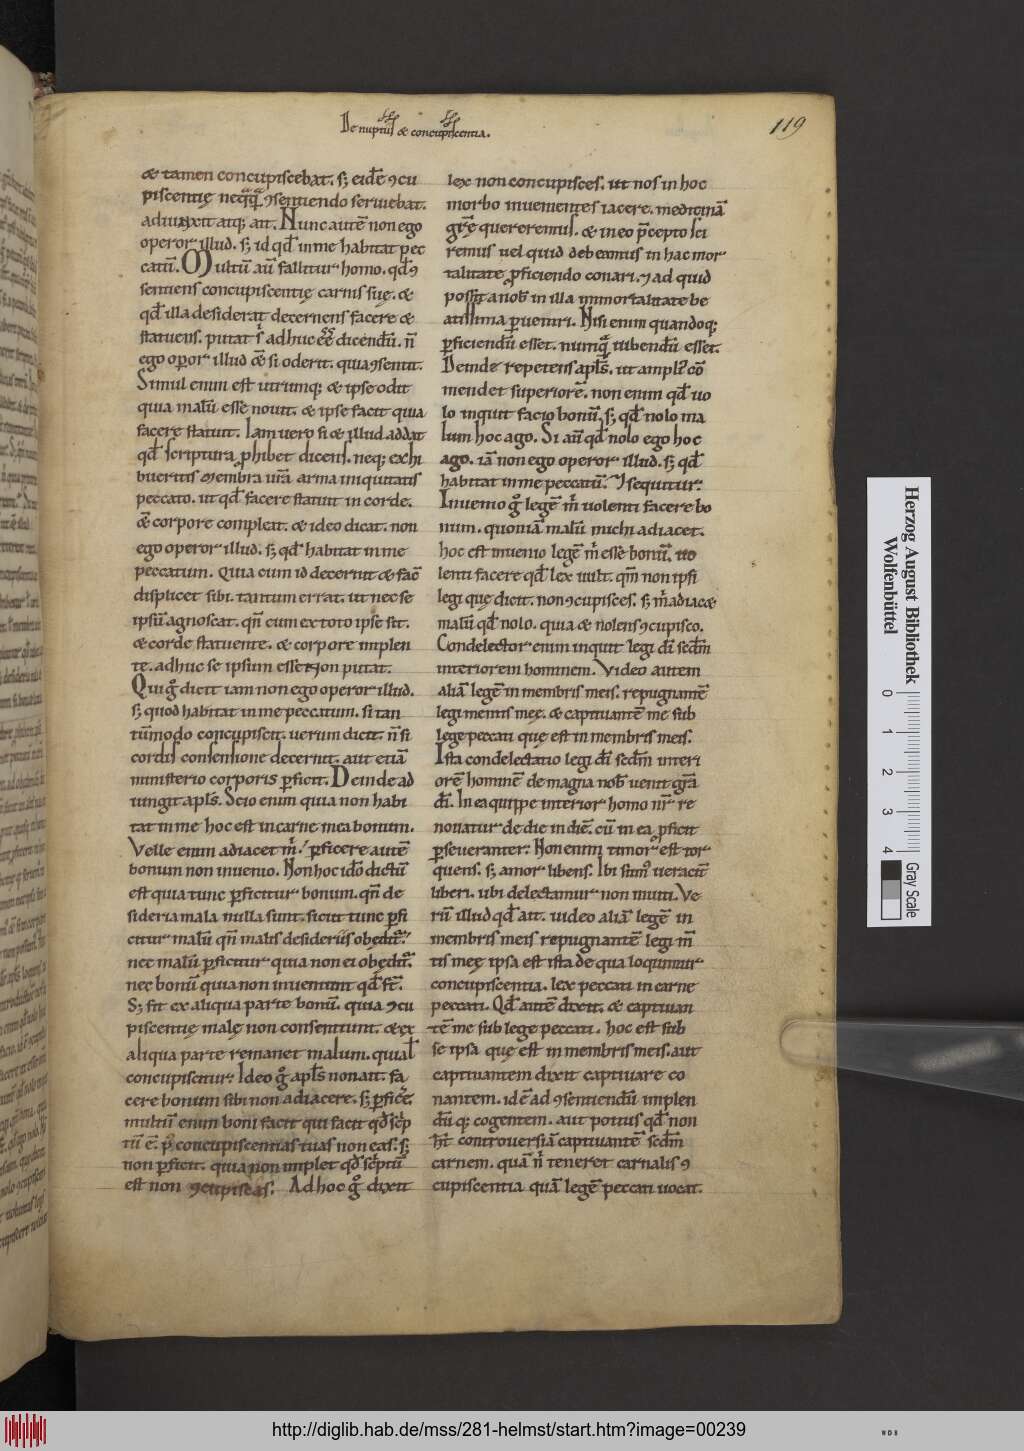 De nuptiis & concupiscentia.
119
& tamen concupiscebat. s; eidē ꝯcu
piscentię neq̃q̃ ꝯsentiendo seruiebat.
adiunxit atq; ait. Nunc autē non ego
operor illud. s; id qđ in me habitat pec
catū. Multū aū fallitur homo. qđ ꝯ
sentiens concupiscentię carnis suę. &
qđ illa desiderat decernens facere &
statuens. putat s̓ adhuc eē dicendū. n̄
ego oꝑor illud & si oderit. quia ꝯsentit.
Simul enim est utrumq; & ipse odit
quia malū esse nouit. & ipse facit quia
facere statuit. Iam uero si & illud addat
qđ scriptura ꝓhibet dicens. neq; exhi
bueritis membra ur̄a arma iniquitatis
peccato. ut qđ facere statuit in corde.
& corpore compleat. & ideo dicat. non
ego operor illud. s; qđ habitat in me
peccatum. quia cum id decernit & fac̄
displicet sibi. tantum errat. ut nec se
ipsū agnoscat. qn̄ cum ex toto ipse sit.
& corde statuente. & corpore implen
te. adhuc se ipsum esse non putat.
Qui g̊ dicit iam non ego operor illud.
s; quod habitat in me peccatum. si tan
tūmodo concupiscit. uerum dicit. n̄ si
cordis consensione decernit. aut etiā
ministerio corporis ꝑficit. Deinde ad
iungit apłs. Scio enim quia non habi
tat in me hoc est in carne mea bonum.
Velle enim adiacet m̓. ꝑficere autē
bonum non inuenio. Non hoc ido dictū
est quia tunc ꝑficitur bonum. qn̄ de
sideria mala nulla sunt. sicut tunc ꝑfi
citur malū qn̄ malis desideriis obędit̃.
nec malū ꝑficitur quia non ei obędit̃.
nec bonū quia non inueniunt qđ
S; fit ex aliqua parte bonū. quia ꝯcu
piscentię malę non consentiunt. & ex
aliqua parte remanet malum. quia ł
concupiscitur. Ideo g̊ apłs non ait. fa
cere bonum sibi non adiacere. s; ꝑficere.
multū enim boni facit qui facit qđ sc̓p
tū ē. p̓ concupiscentias tuas non eas. s;
non ꝑficit. quia non implet qđ sc̓ptū
est non ꝯcupisces. Ad hoc g̊ dixit
lex non concupisces. ut nos in hoc
morbo inuenientes iacere. medicinā
gr̄e quereremus. & in eo p̄cepto sci
remus uel quid debeamus in hac mor
talitate ꝓficiendo conari. ⁊ ad quid
possit a nob̄ in illa immortalitate be
atissima ꝑueniri. Nisi enim quandoq;
ꝑficiendū esset. numq̃ iubendū esset.
Deinde repetens apłs. ut ampl̓ cō
mendet superiorē. non enim qđ uo
lo inquit facio bonū. s; qđ nolo ma
lum hoc ago. Si aū qđ nolo ego hoc
ago. iā non ego operor illud. s; qđ
habitat in me peccatū. ⁊ sequitur.
Inuenio g̊ legē m̓ uolenti facere bo
num. quoniā malū michi adiacet.
hoc est inuenio legē m̓ esse bonū. uo
lenti facere qđ lex uult. qm̄ non ipsi
legi quę dicit. non ꝯcupisces. s; m̓ adiac&
malū qđ nolo. quia & nolens ꝯcupisco.
Condelector enim inquit legi di sedm̄
interiorem hominem. Video autem
aliā legē in membris meis. repugnantē
legi mentis meę. & captiuantē me sub
lege peccati quę est in membris meis.
Ista condelectatio legi di sedm̄ interi
orē hominē de magna nob̄ uenit gr̄a
di. In ea quippe interior homo nr̄ re
nouatur de die in diē. cū in ea ꝓficit
ꝑseueranter. Non enim timor est tor
quens. s; amor libens. Ibi sum̓ ueracit̄
liberi. ubi delectamur non inuiti. Ve
rū illud qđ ait. uideo aliā legē in
membris meis repugnantē legi m̄
tis meę ipsa est ista de qua loquimur
concupiscentia. lex peccati in carne
peccati. Qđ autē dixit. & captiuan
tē me sub lege peccati. hoc est sub
se ipsa quę est in membris meis. aut
captiuantem dixit captiuare co
nantem. id ē ad ꝯsentiendū implen
dū q; cogentem. aut potius qđ non
controuersiā captiuantē sedm̄
carnem. quā n̓ teneret carnalis ꝯ
cupiscentia quā legē peccati uocat.
Herzog August Bibliothek
Wolfenbüttel
0 1 2 3 4
Gray Scale
http://diglib.hab.de/mss/281-helmst/start.htm?image=00239